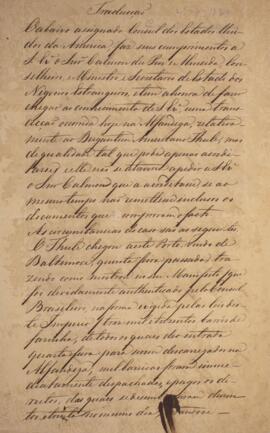 Traducção
O abaixo assignado Consul dos Estados Uni-
dos da America faz seus cumprimentos a
S. Exª o Snr Calmon du Pin e Almeida, Con-
selheiro, Ministro e Secretario de Estado dos
Negocios Estrangeiros, e tem a honra de fazer
chegar ao conhecimento de S. Exª, uma trans-
acção ocorrida hoje na Alfandega, relativa-
mente ao Bergantim Americano Thule, mas
de qualidade tal que pode apenas acredi-
tar-se, e elle não se atreveria a pedir a S. Exª
o Snr Calmon que a acreditasse se ao
mesmo tempo não remettesse inclusos os
documentos que comprovam o facto.
As circumstancias do caso são as seguintes
O Thule chegou a este Porto vindo de
Baltimore, quinta feira passada, tra-
zendo como consta do seu Manifesto (que
foi devidamente authenticado pelo Consul
Brasileiro, na forma exigida pelas leis des-
te Imperio) tres mil e barris de
farinha, de todos os quaes deo entrada
quarta feira para serem descarregados na
Alfandega, mil barricas foram imme-
diatamente despachadas, e pagos os di-
reitos, das quaes